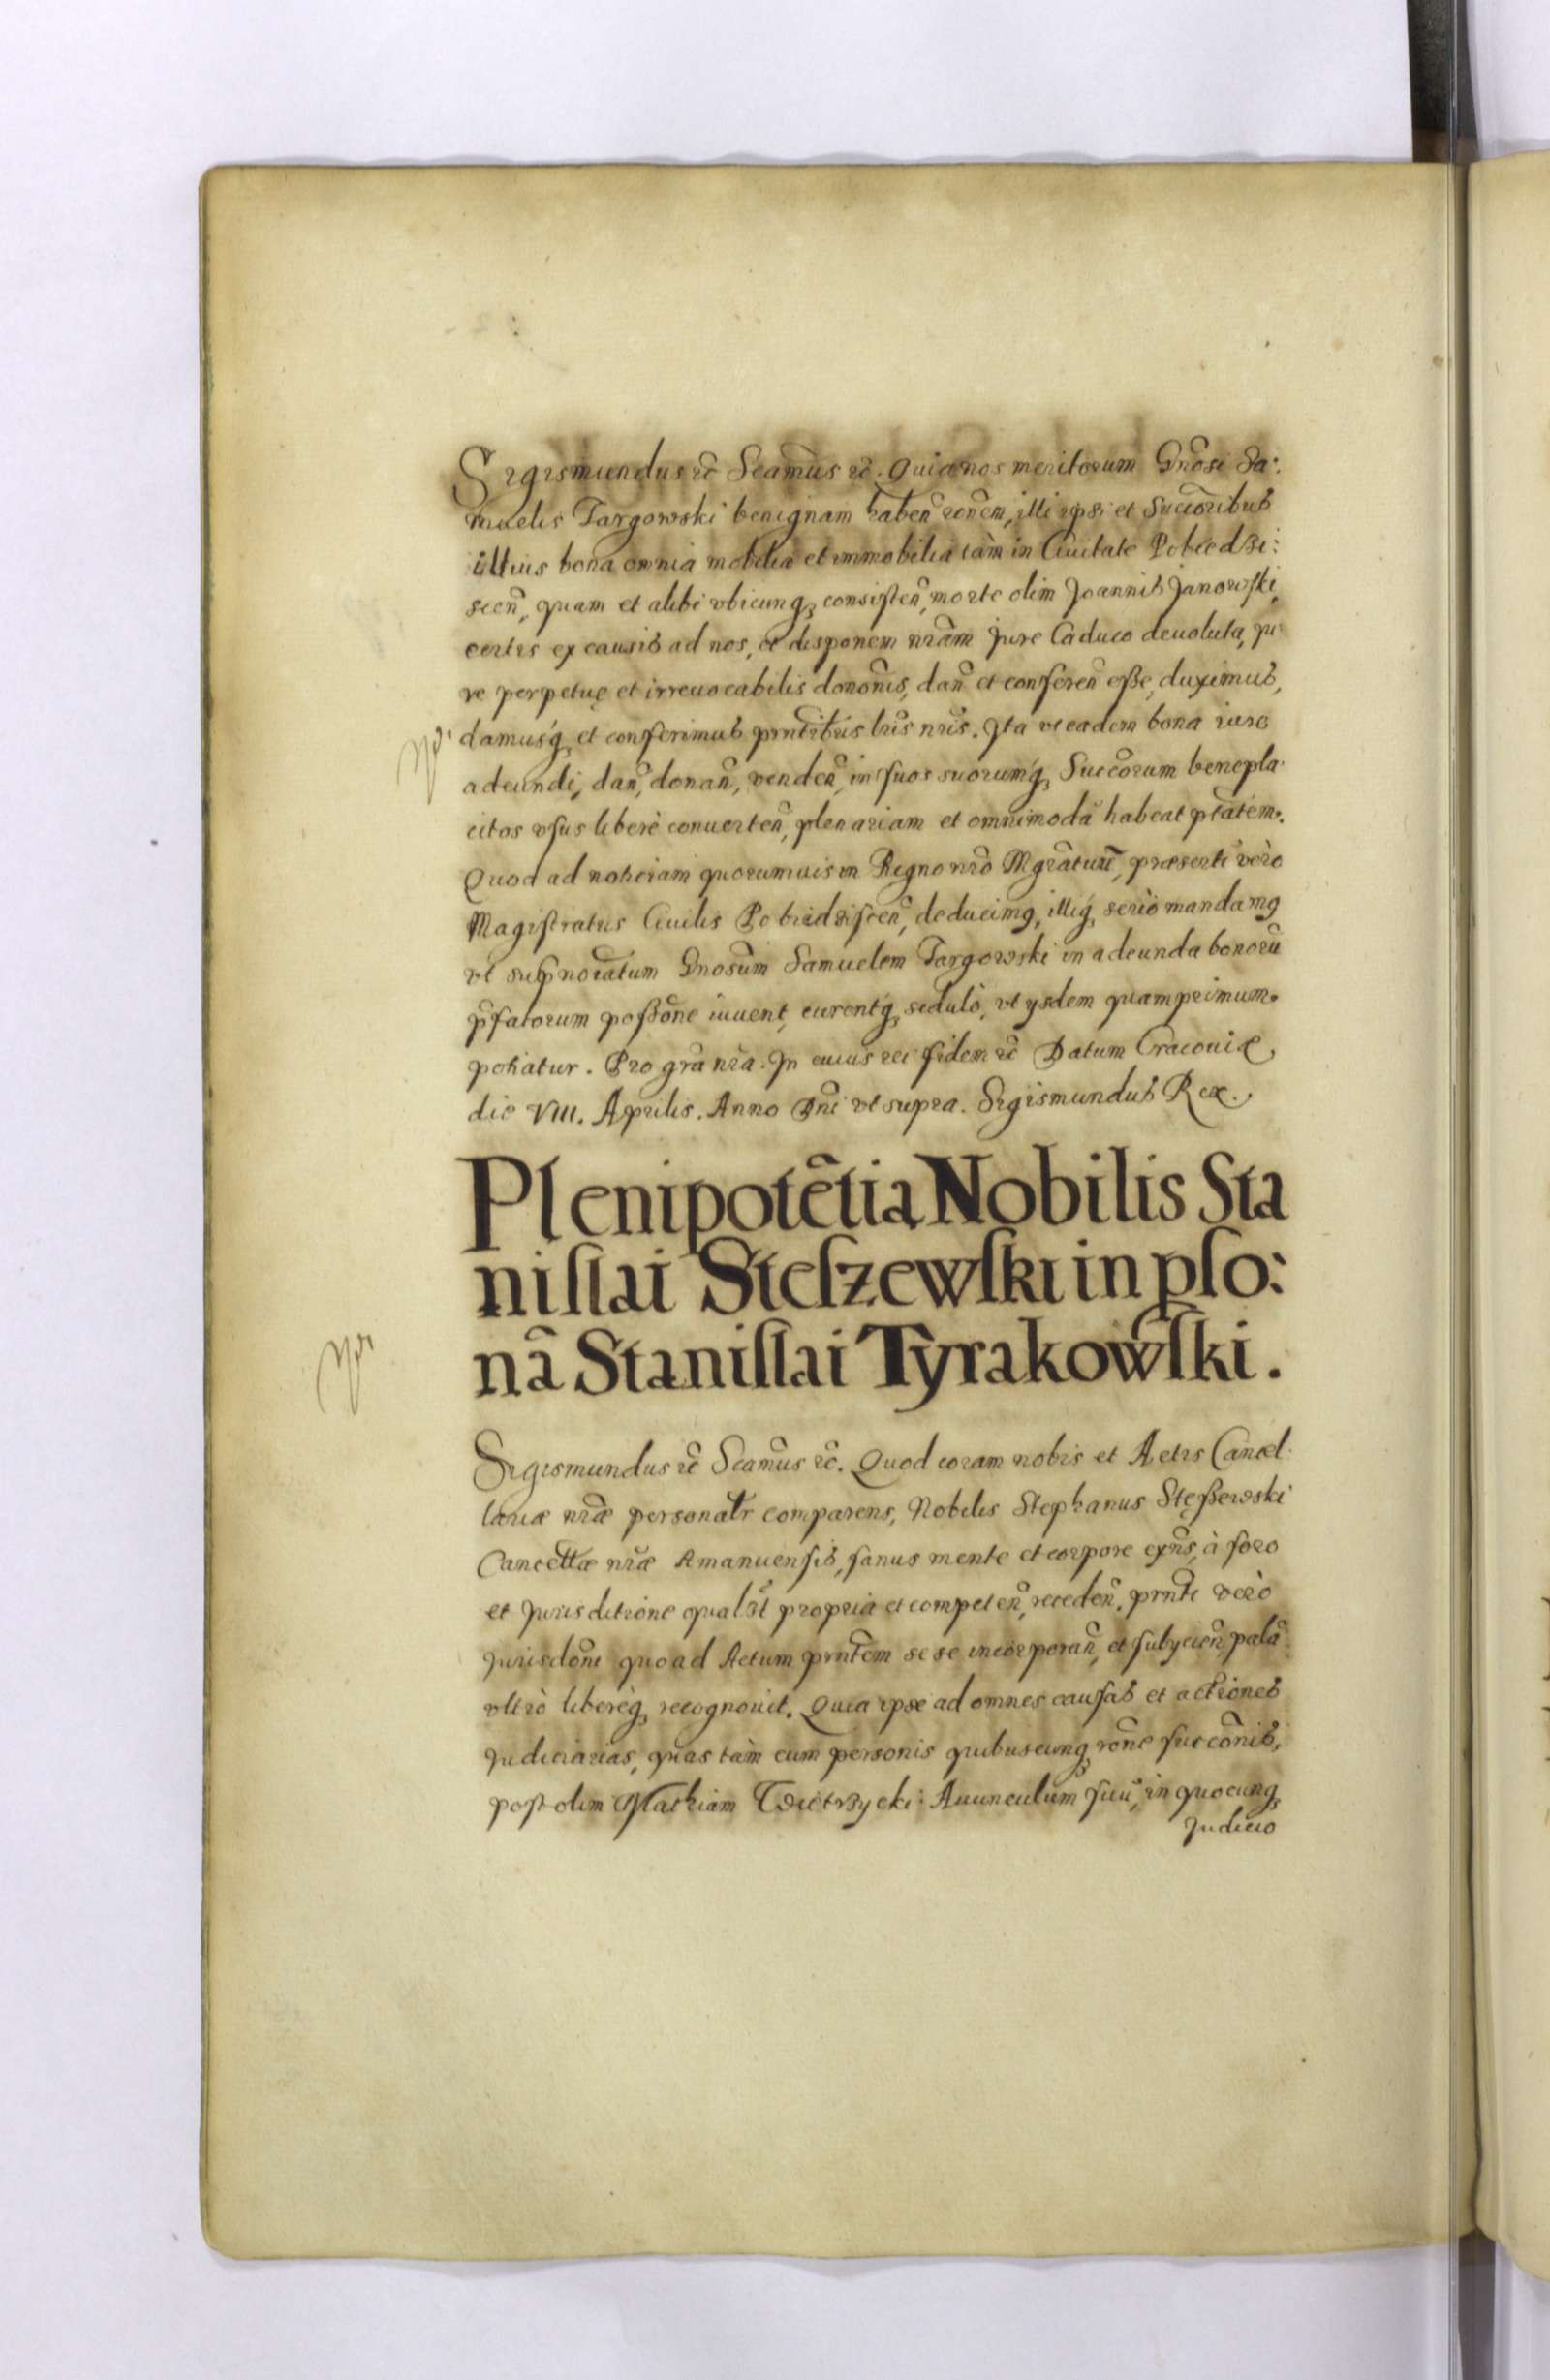 Sigismundus etc̃ Scam̃us etc̃. Quia nos meritorum Gñosi Sa:
muelis Targowski benignam habeñ rõnem, illi ipsi et Succõribus
illius bona omnia mobilia et immobilia tàm in Ciuitate Pobiedzi:
sceñ, quam et alibi vbicunq₃ consisteñ, morte olim Joannis Janowski,
certis ex causis ad nos, et disponem nr̃am Jure Caduco deuoluta, Ju:
re perpetuę et irreuocabilis donõnis, dañ et confereñ esse, duximus,
damusq́₃ et conferimus pr̃ntibus lr̃is nr̃is. Ita vt eadem bona iure
adeundi, dañ, donañ, vendeñ, in suos suorumq́₃ Succõrum benepla
citos vsus liberè conuerteñ, plenariam et omnimodã habeat ptãtem.
Quod ad noticiam quorumuis in Regno nr̃o Mgr̃atuũ, præserti vèro
Magistratus Ciuilis Pobiedzisceñ, deducimꝯ, illiq́₃ seriò mandamꝯ
vt supnoiãtum Gñosum Samuelem Targowski in adeunda bonorũ
p̃fatorum possõne iuuent, curentq́₃ sedulò, vt ijsdem quamprimum.
potiatur. Pro grã nr̃a. In cuius rei fidem etc̃ Datum Cracouiæ,
die VIII. Aprilis. Anno Dñi vt supra. Sigismundus Rex.
Plenipotẽtia Nobilis Sta
nislai Steszewski in pso:
nã Stanislai Tyrakowski.
Sigismundus etc̃ Scam̃us etc̃. Quod coram nobis et Actis Cancel:
lariæ nr̃æ personalr̃ comparens, Nobilis Stephanus Stęszewski
Cancellæ nr̃æ Amanuensis, sanus mente et corpore exñs, à foro
et Jurisditione qualt̃ propria et competeñ, recedeñ, pr̃nti verò
Jurisdõni quoad Actum pr̃ntem sese incorporañ, et subijcieñ, palã
vltrò liberèq́₃ recognouit. Quia ipse ad omnes causas et actiones
Judiciarias, quas tàm cum personis quibuscunq₃ rõne succõnis,
post olim Mathiam Wietrzycki: Auunculum suũ, in quocunq₃
Judicio